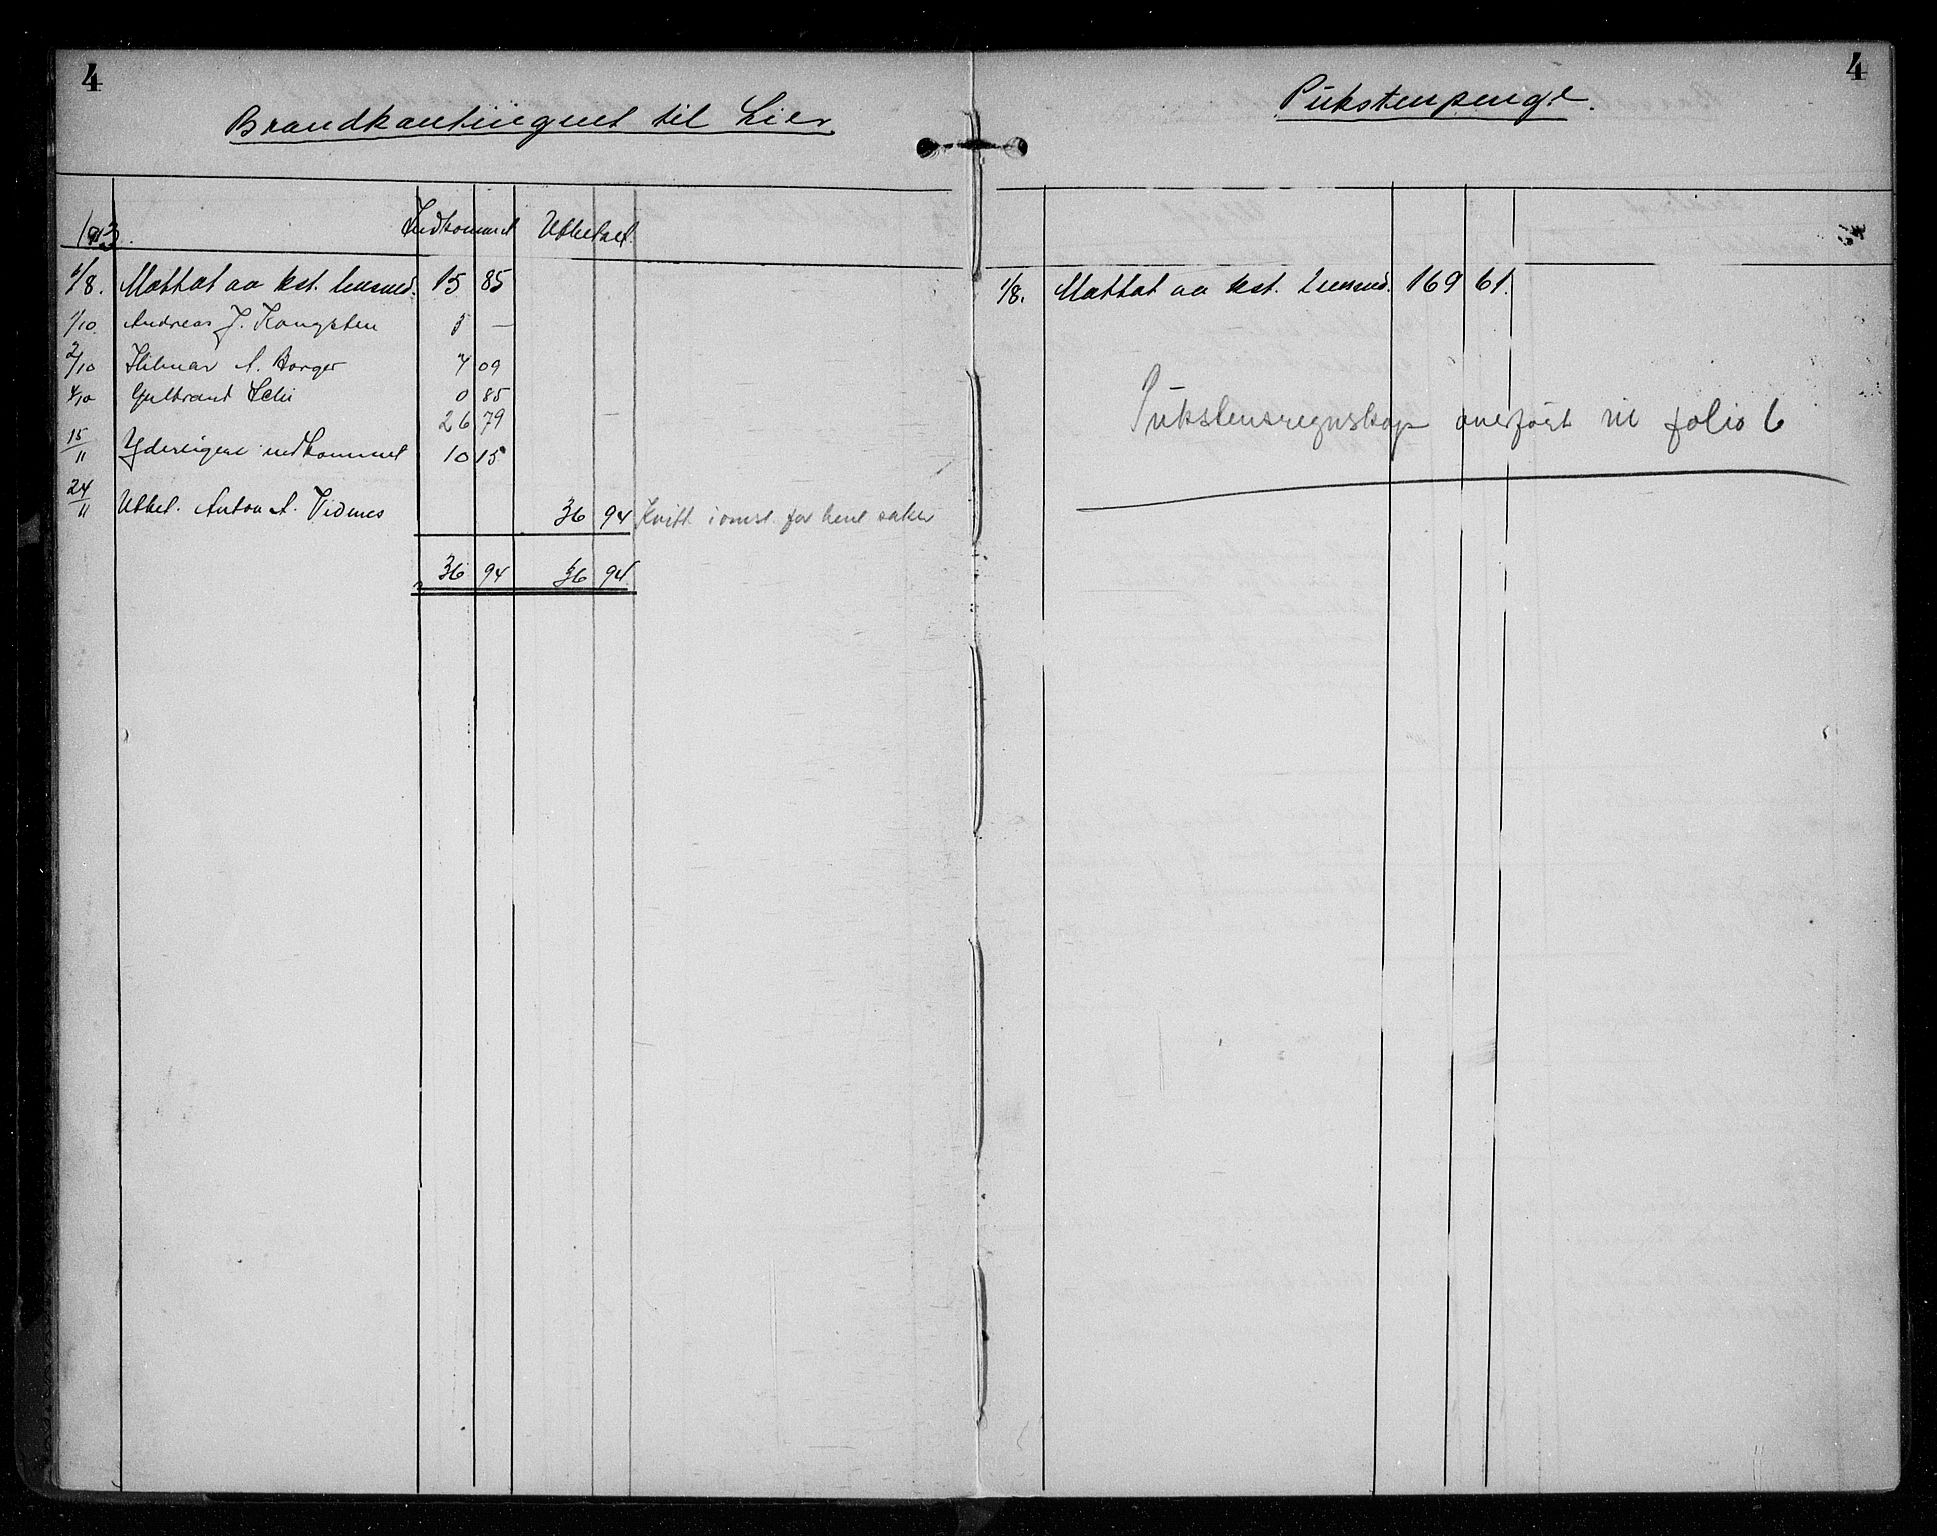 4
Brandkontingent til Lier
1913. Indkommet Utbetalt.
1/8. Mottat av kst. lensmd. 15 85
1/10. Andreas J. Kongsten 5 —
2/10 Hilmar A. Borger
09
4/10 Gulbrand 0 85
26 79
15/11 Yderligere indkommet 10 15
24/11 Utbet. Anton A. Vidnes 36 94 Kvitt. for saker
36 94 36 94
4
Pukstenpenge.
1/8. Mottat av kst. Lensmd. 169 61.
Pukstensregnskap overført til folio 6